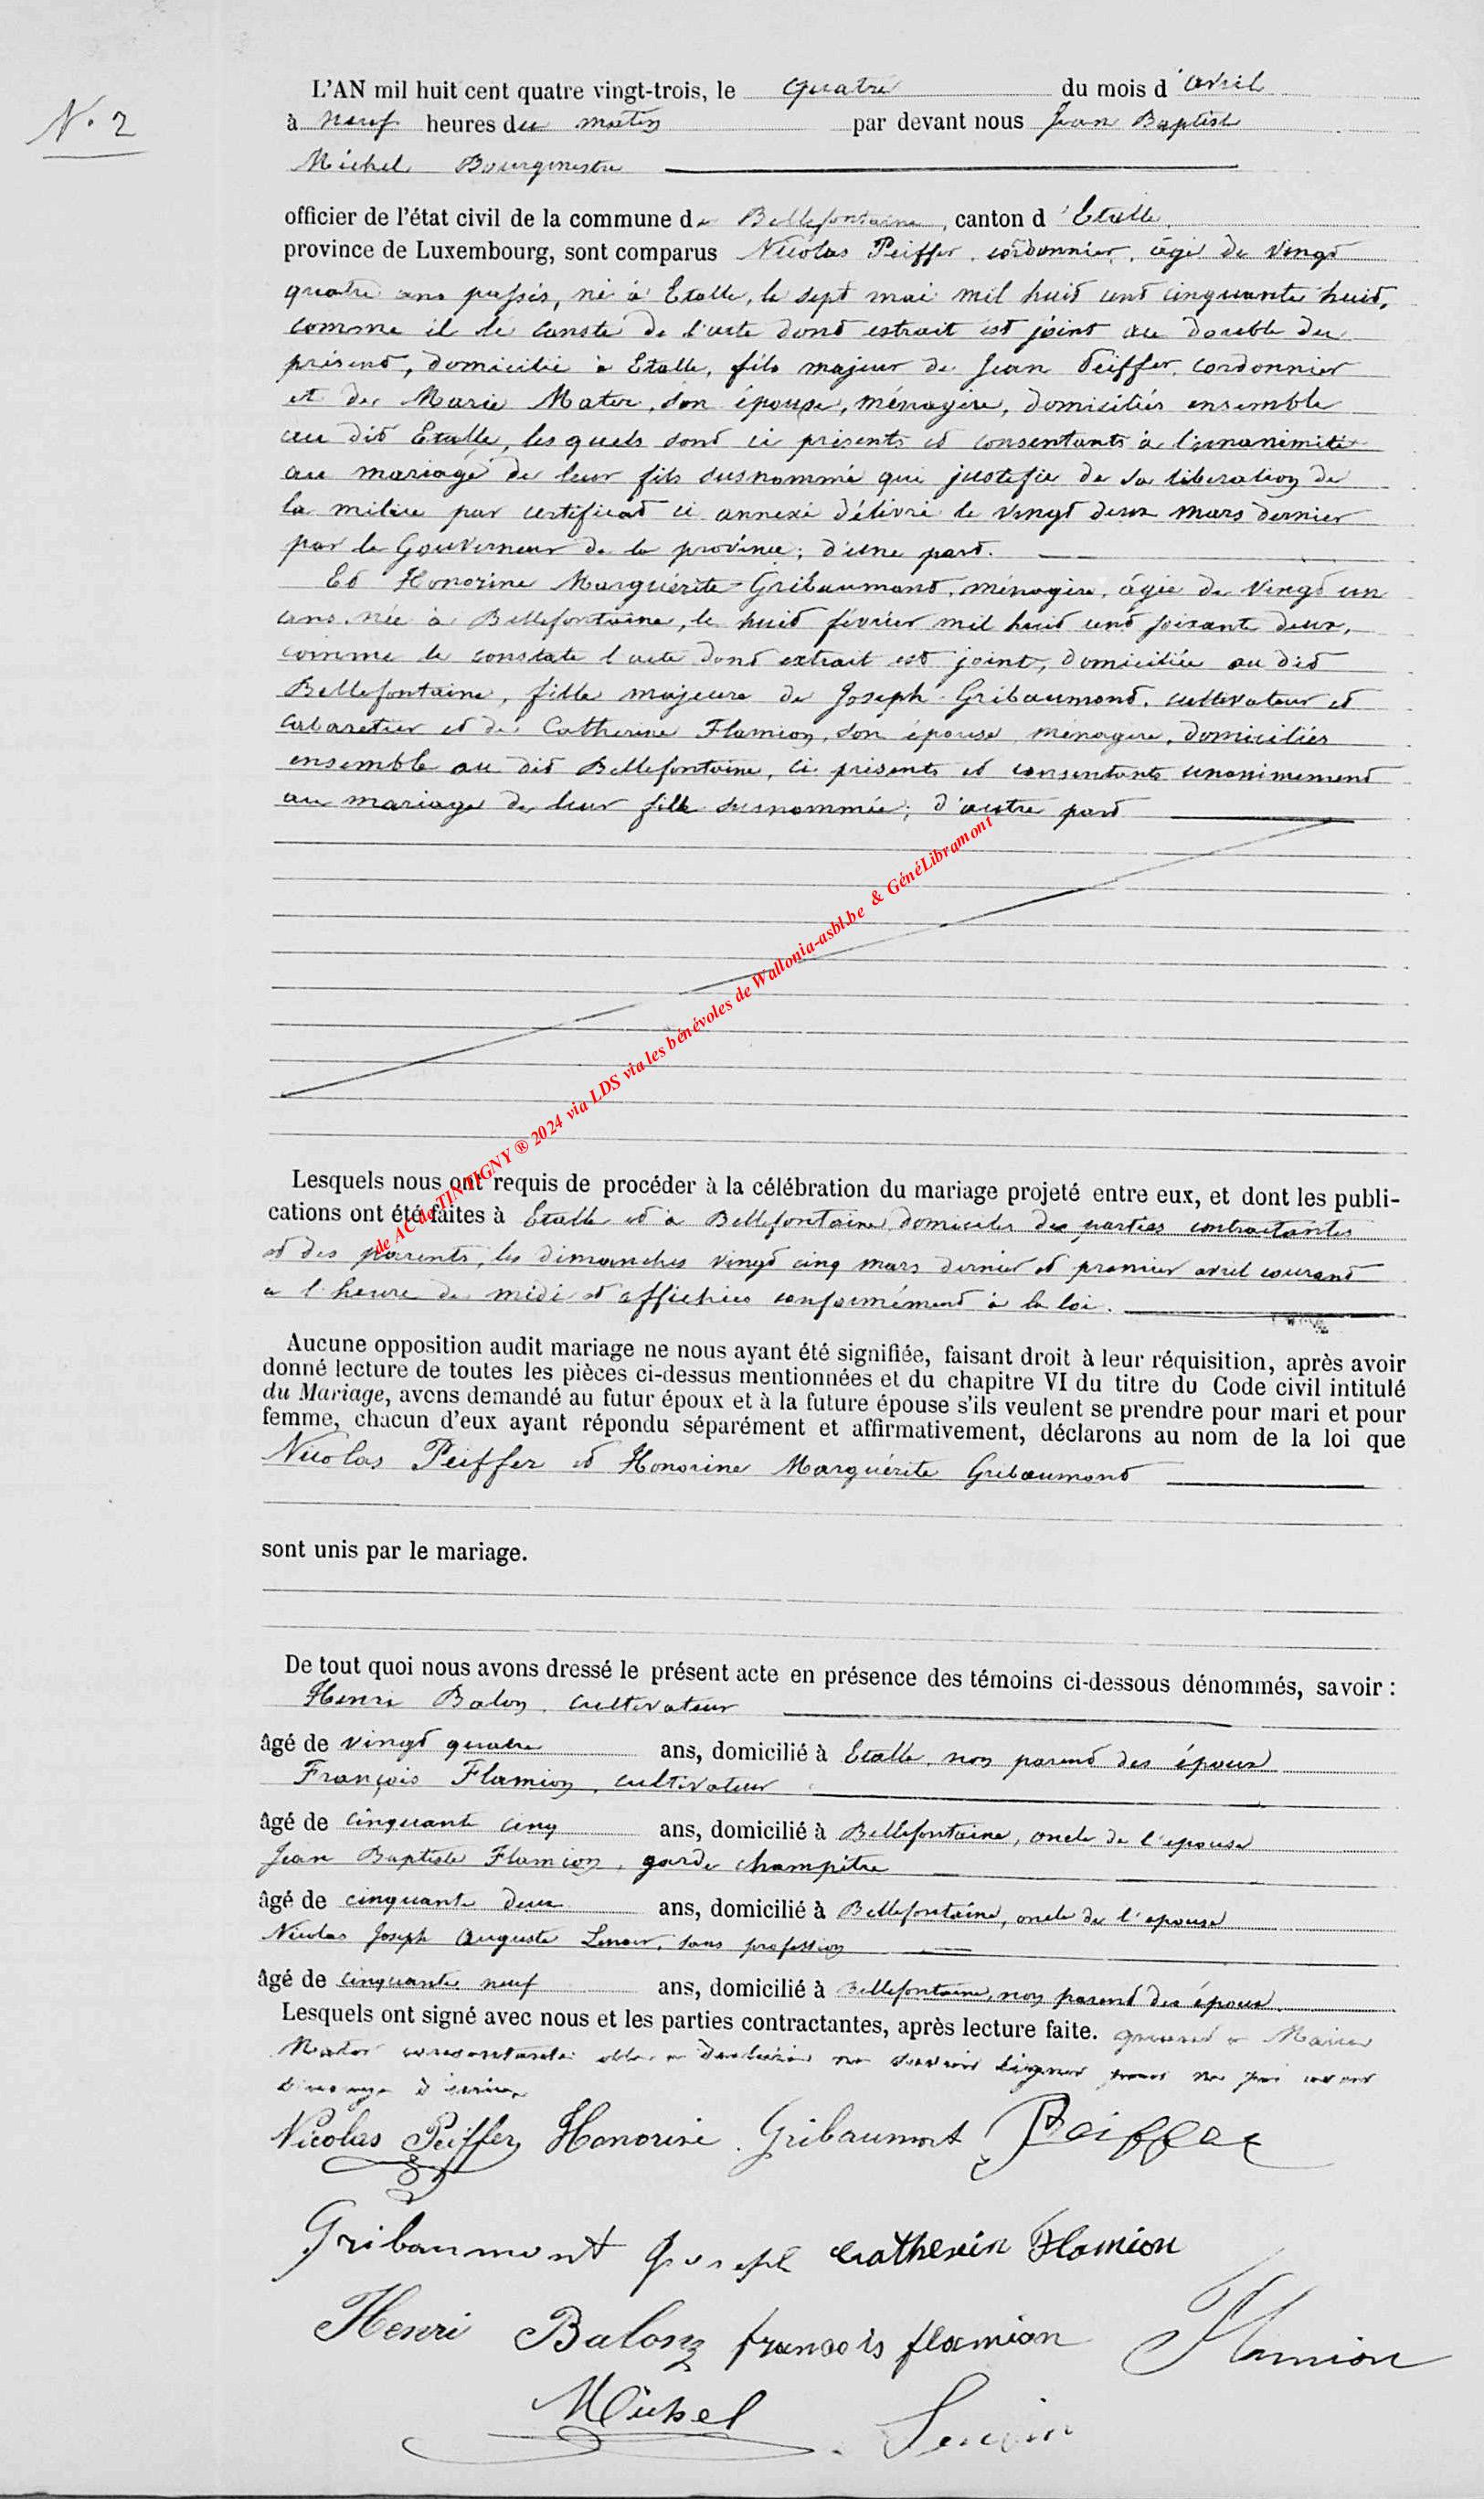 N. 2
L'AN mil huit cent quatre vingt-trois, le quatre du mois d'avril
à neuf heures du matin par devant nous Jean Baptiste
Michel Bourgmestre
officier de l'état civil de la commune de Bellefontaine, canton d'Etalle
province de Luxembourg, sont comparus Nicolas Peiffer, cordonnier, âgé de vingt
quatre ans passés, né à Etalle, le sept mai mil huit cent cinquante huit,
comme il le conste de l'acte dont extrait est joint au double du
présent, domicilié à Etalle, fils majeur de Jean Peiffer, cordonnier
et de Marie Mater, son épouse, ménagère, domiciliés ensemble
au dit Etalle, les quels sont ci présents et consentants à l'unanimité
au mariage de leur fils susnommé qui justifie de sa libération de
la milice par certificat ci annexé délivré le vingt deux mars dernier
par le Gouverneur de la province; d'une part.
Et Honorine Marguérite Gribaumont, ménagère, âgée de vingt un
ans, née à Bellefontaine, le huit février mil huit cent soixante deux,
comme le constate l'acte dont extrait est joint, domiciliée au dit
Bellefontaine, fille majeure de Joseph Gribaumont, cultivateur et
cabaretier et de Catherine Flamion, son épouse, ménagère, domiciliés
ensemble au dit Bellefontaine, ci présents et consentants unanimement
au mariage de leur fille susnommée; d'autre part
de AC de TINTIGNY ® 2024 via LDS via les bénévoles de Wallonia-asbl.be & GénéLibramont
Lesquels nous ont requis de procéder à la célébration du mariage projeté entre eux, et dont les publi-
cations ont été faites à Etalle et à Bellefontaine domiciles des parties contractantes
et des parents, les dimanches vingt cinq mars dernier et premier avril courant
à l'heure de midi et affichées conformément à la loi.
Aucune opposition audit mariage ne nous ayant été signifiée, faisant droit à leur réquisition, après avoir
donné lecture de toutes les pièces ci-dessus mentionnées et du chapitre VI du titre du Code civil intitulé
du Mariage, avons demandé au futur époux et à la future épouse s'ils veulent se prendre pour mari et pour
femme, chacun d'eux ayant répondu séparément et affirmativement, déclarons au nom de la loi que
Nicolas Peiffer et Honorine Marguérite Gribaumont
sont unis par le mariage.
De tout quoi nous avons dressé le présent acte en présence des témoins ci-dessous dénommés, savoir :
Henri Balon, cultivateur
âgé de vingt quatre ans, domicilié à Etalle, non parent des époux
François Flamion, cultivateur
âgé de cinquante cinq ans, domicilié à Bellefontaine, oncle de l'épouse
Jean Baptiste Flamion, garde champêtre
âgé de cinquante deux ans, domicilié à Bellefontaine, oncle de l'épouse
Nicolas Joseph Auguste Lenoir, sans profession
âgé de cinquante neuf ans, domicilié à Bellefontaine, non parent des époux
Lesquels ont signé avec nous et les parties contractantes, après lecture faite. quant à Marie
Mater elle a déclaré ne savoir signer pour ne pas avoir
Nicolas Peiffer Honorine Gribaumont Peiffer
Gribaumont Joseph Catherin Flamion
Henri Balon francois flamion Flamion
Michel